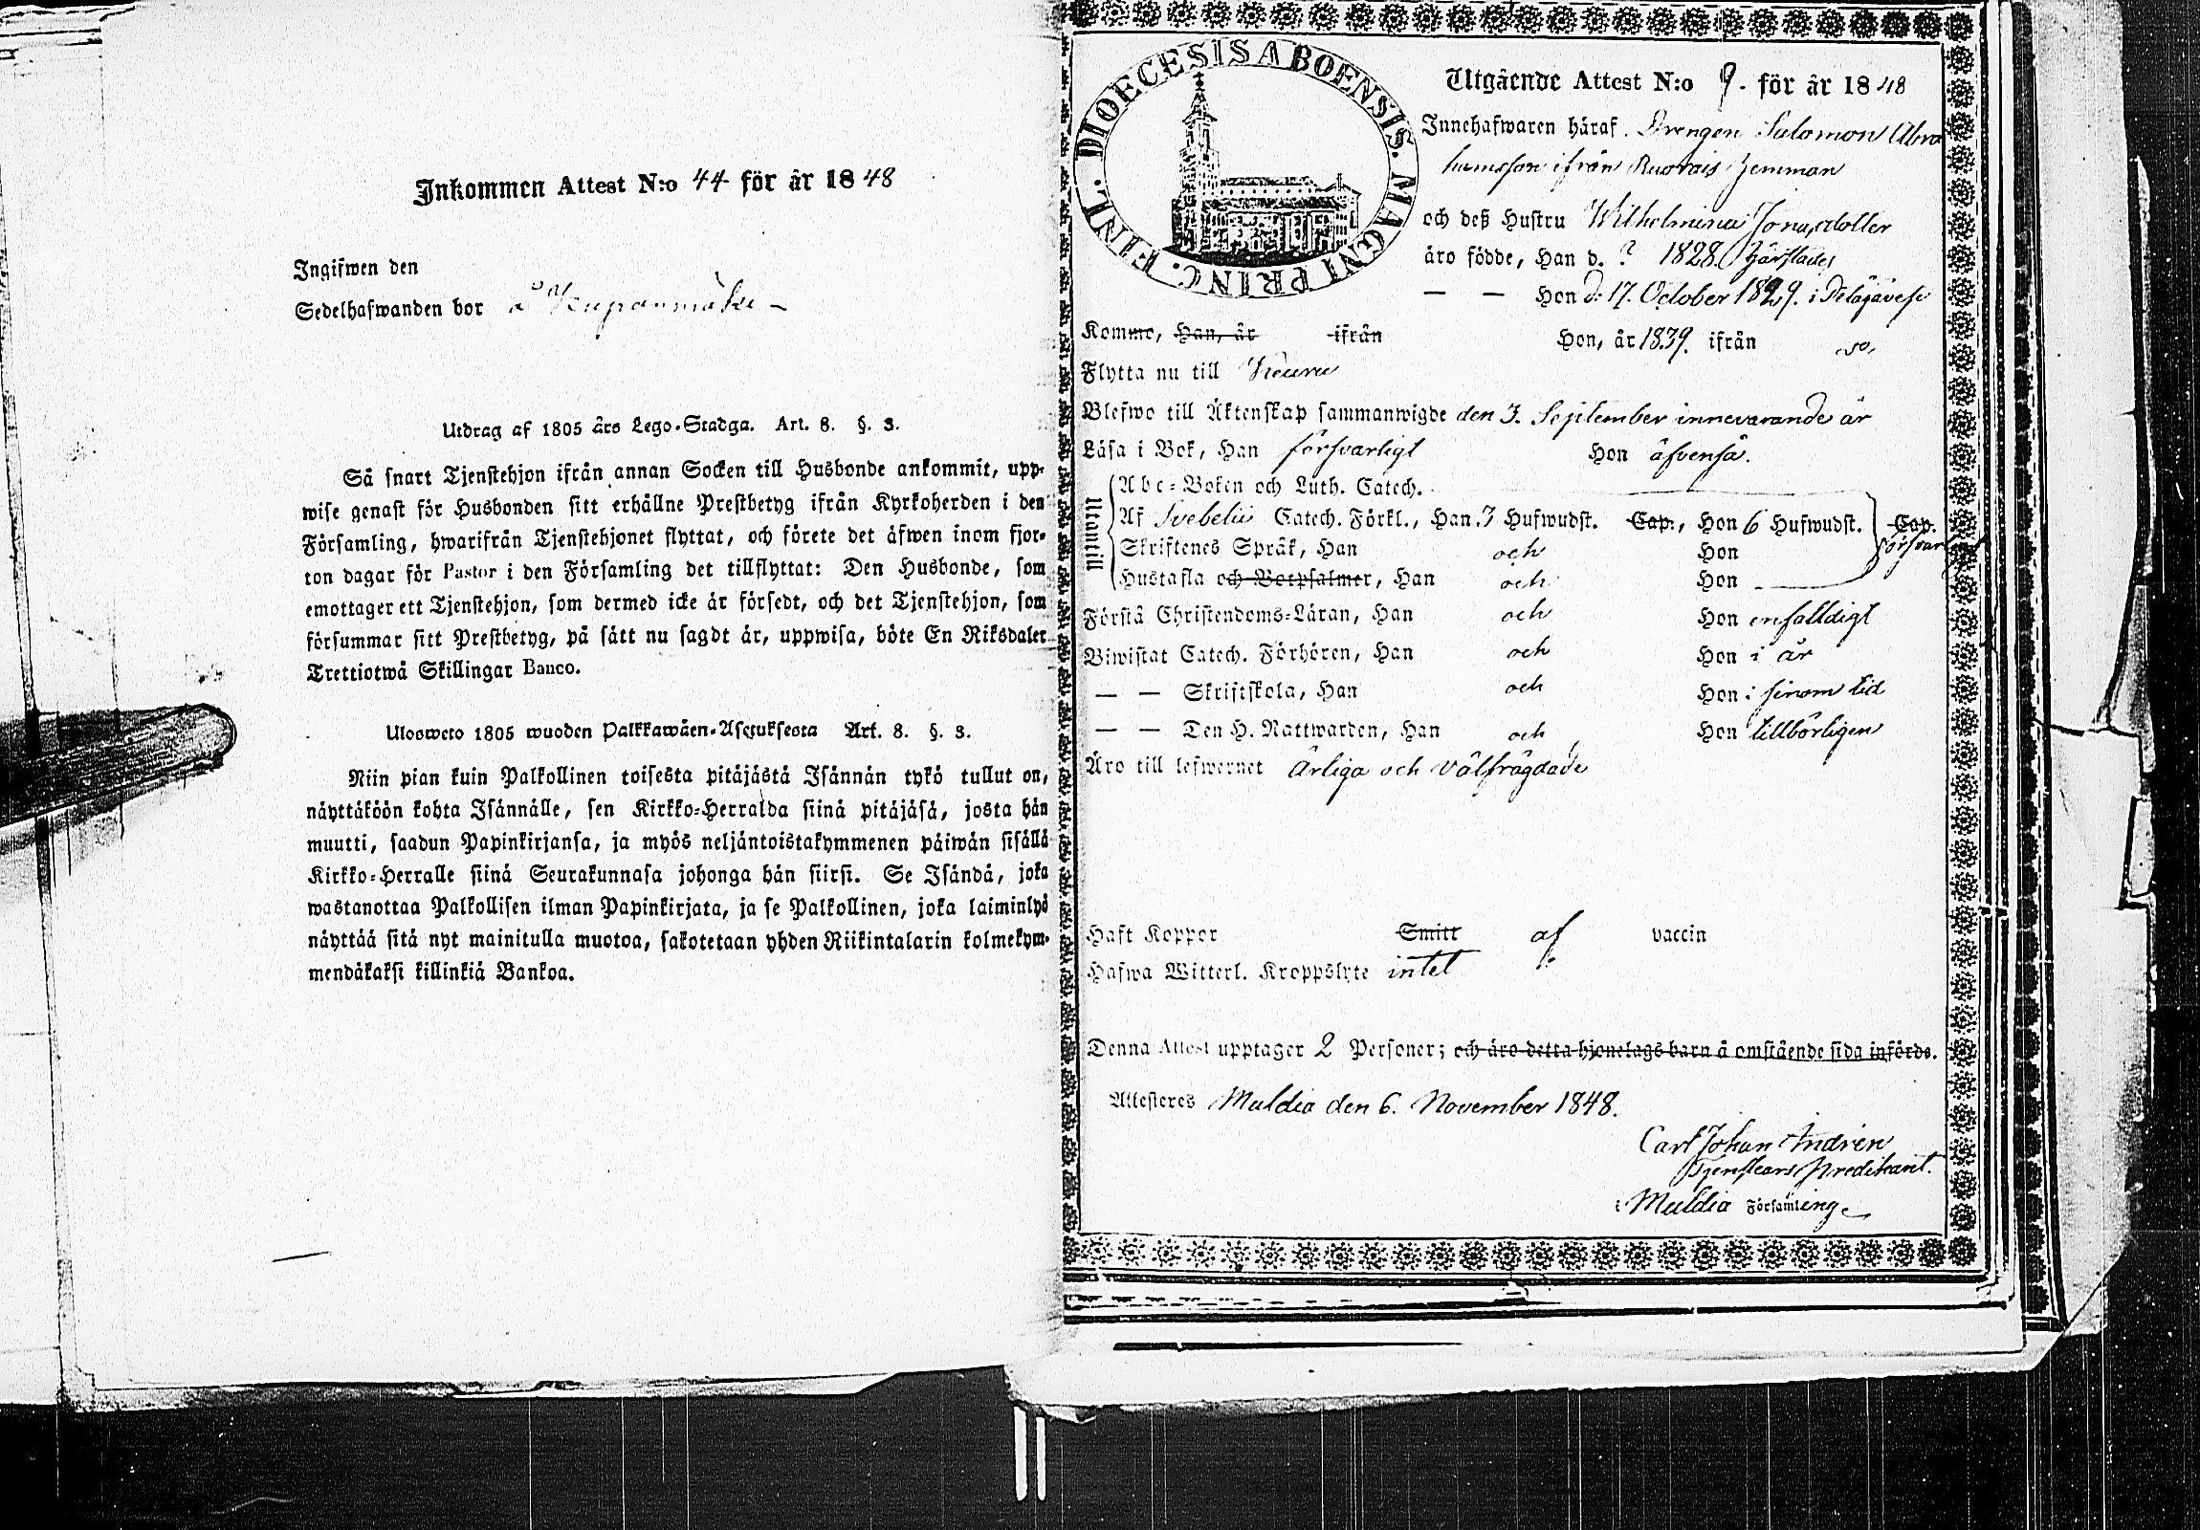 Inkommen Attest N:o 44 för år 1848
Ingifwen den
Sedelhafwanden bor å
Utdrag af 1805 års Lego-Stadga. Art. 8. §. 3.
Så snart Tjenstehjon ifrån annan Socken till Husbonde ankommit, upp-
wise genast för Husbonden sitt erhållne Prestbetyg ifrån Kyrkoherden i den
Församling, hwarifrån Tjenstehjonet flyttat, och förete det äfwen inom fjor-
ton dagar för Pastor i den Församling det tillflyttat: Den Husbonde, som
emottager ett Tjenstehjon, som dermed icke är försedt, och det Tjenstehjon, som
försummar sitt Prestbetyg, på sätt nu sagdt är, uppwisa, böte En Riksdaler
Trettiotwå Skillingar Banco.
Ulosweto 1805 wuoden Palkkawäen-Asetuksesta Art. 8. §. 3.
Niin pian kuin Palkollinen toisesta pitäjästä Isännän tykö tullut on,
näyttäköön kohta Isännälle, sen Kirkko-Herralda siinä pitäjäsä, josta hän
muutti, saadun Papinkirjansa, ja myös neljäntoistakymmenen päiwän sisällä
Kirkko-Herralle siinä Seurakunnasa johonga hän siirsi. Se Isändä, joka
wastanottaa Palkollisen ilman Papinkirjata, ja se Palkollinen, joka laiminlyö
näyttää sitä nyt mainitulla muotoa, sakotetaan yhden Riikintalarin kolmekym-
mendäkaksi killinkiä Bankoa.
DIOECESIS ABOENSIS. MAGNI PRINC. FINL.
Utgående Attest N:o 9. för år 1848
Innehafwaren häraf Drengen Salomon Abra
hamsson ifrån Ruorais hemman
och deß Hustru Wilhelmina Jonaedotter
äro födde, Han d. ? 1828. Härstädes
— — Hon d. 17. October 1829. i
Kommo, Han, år ifrån Hon, år 1839. ifrån
Flytta nu till Keuru
Blefwo till Äktenskap sammanwigde den 3. September innevarande år
Läsa i Bok, Han försvarligt Hon äfvenså.
Utantill
Abc-Boken och Luth. Catech.
Af Svebelii Catech. Förkl., Han 3 Hufwudst. Cap., Hon 6 Hufwudst. Cap.
Skriftenes Språk, Han och Hon
Hustafla och Botpsalmer, Han och Hon
Förstå Christendoms-Läran, Han och Hon enfalldigt
Biwistat Catech. Förhören, Han och Hon i år
— — Skriftskola, Han och Hon i sinom tid
— — Den H. Nattwarden, Han och Hon tillbörligen
Äro till lefwernet Ärliga och välfrägdade
Haft Koppor Smitt af vaccin
Hafwa Witterl. Kroppslyte intet
Denna Attest upptager 2 Personer; och äro detta hjonelags barn å omstående sida införde.
Attesteres Muldia den 6. November 1848.
Carl Johan Andrén
Tjenstears Predikant.
i Muldia Församling